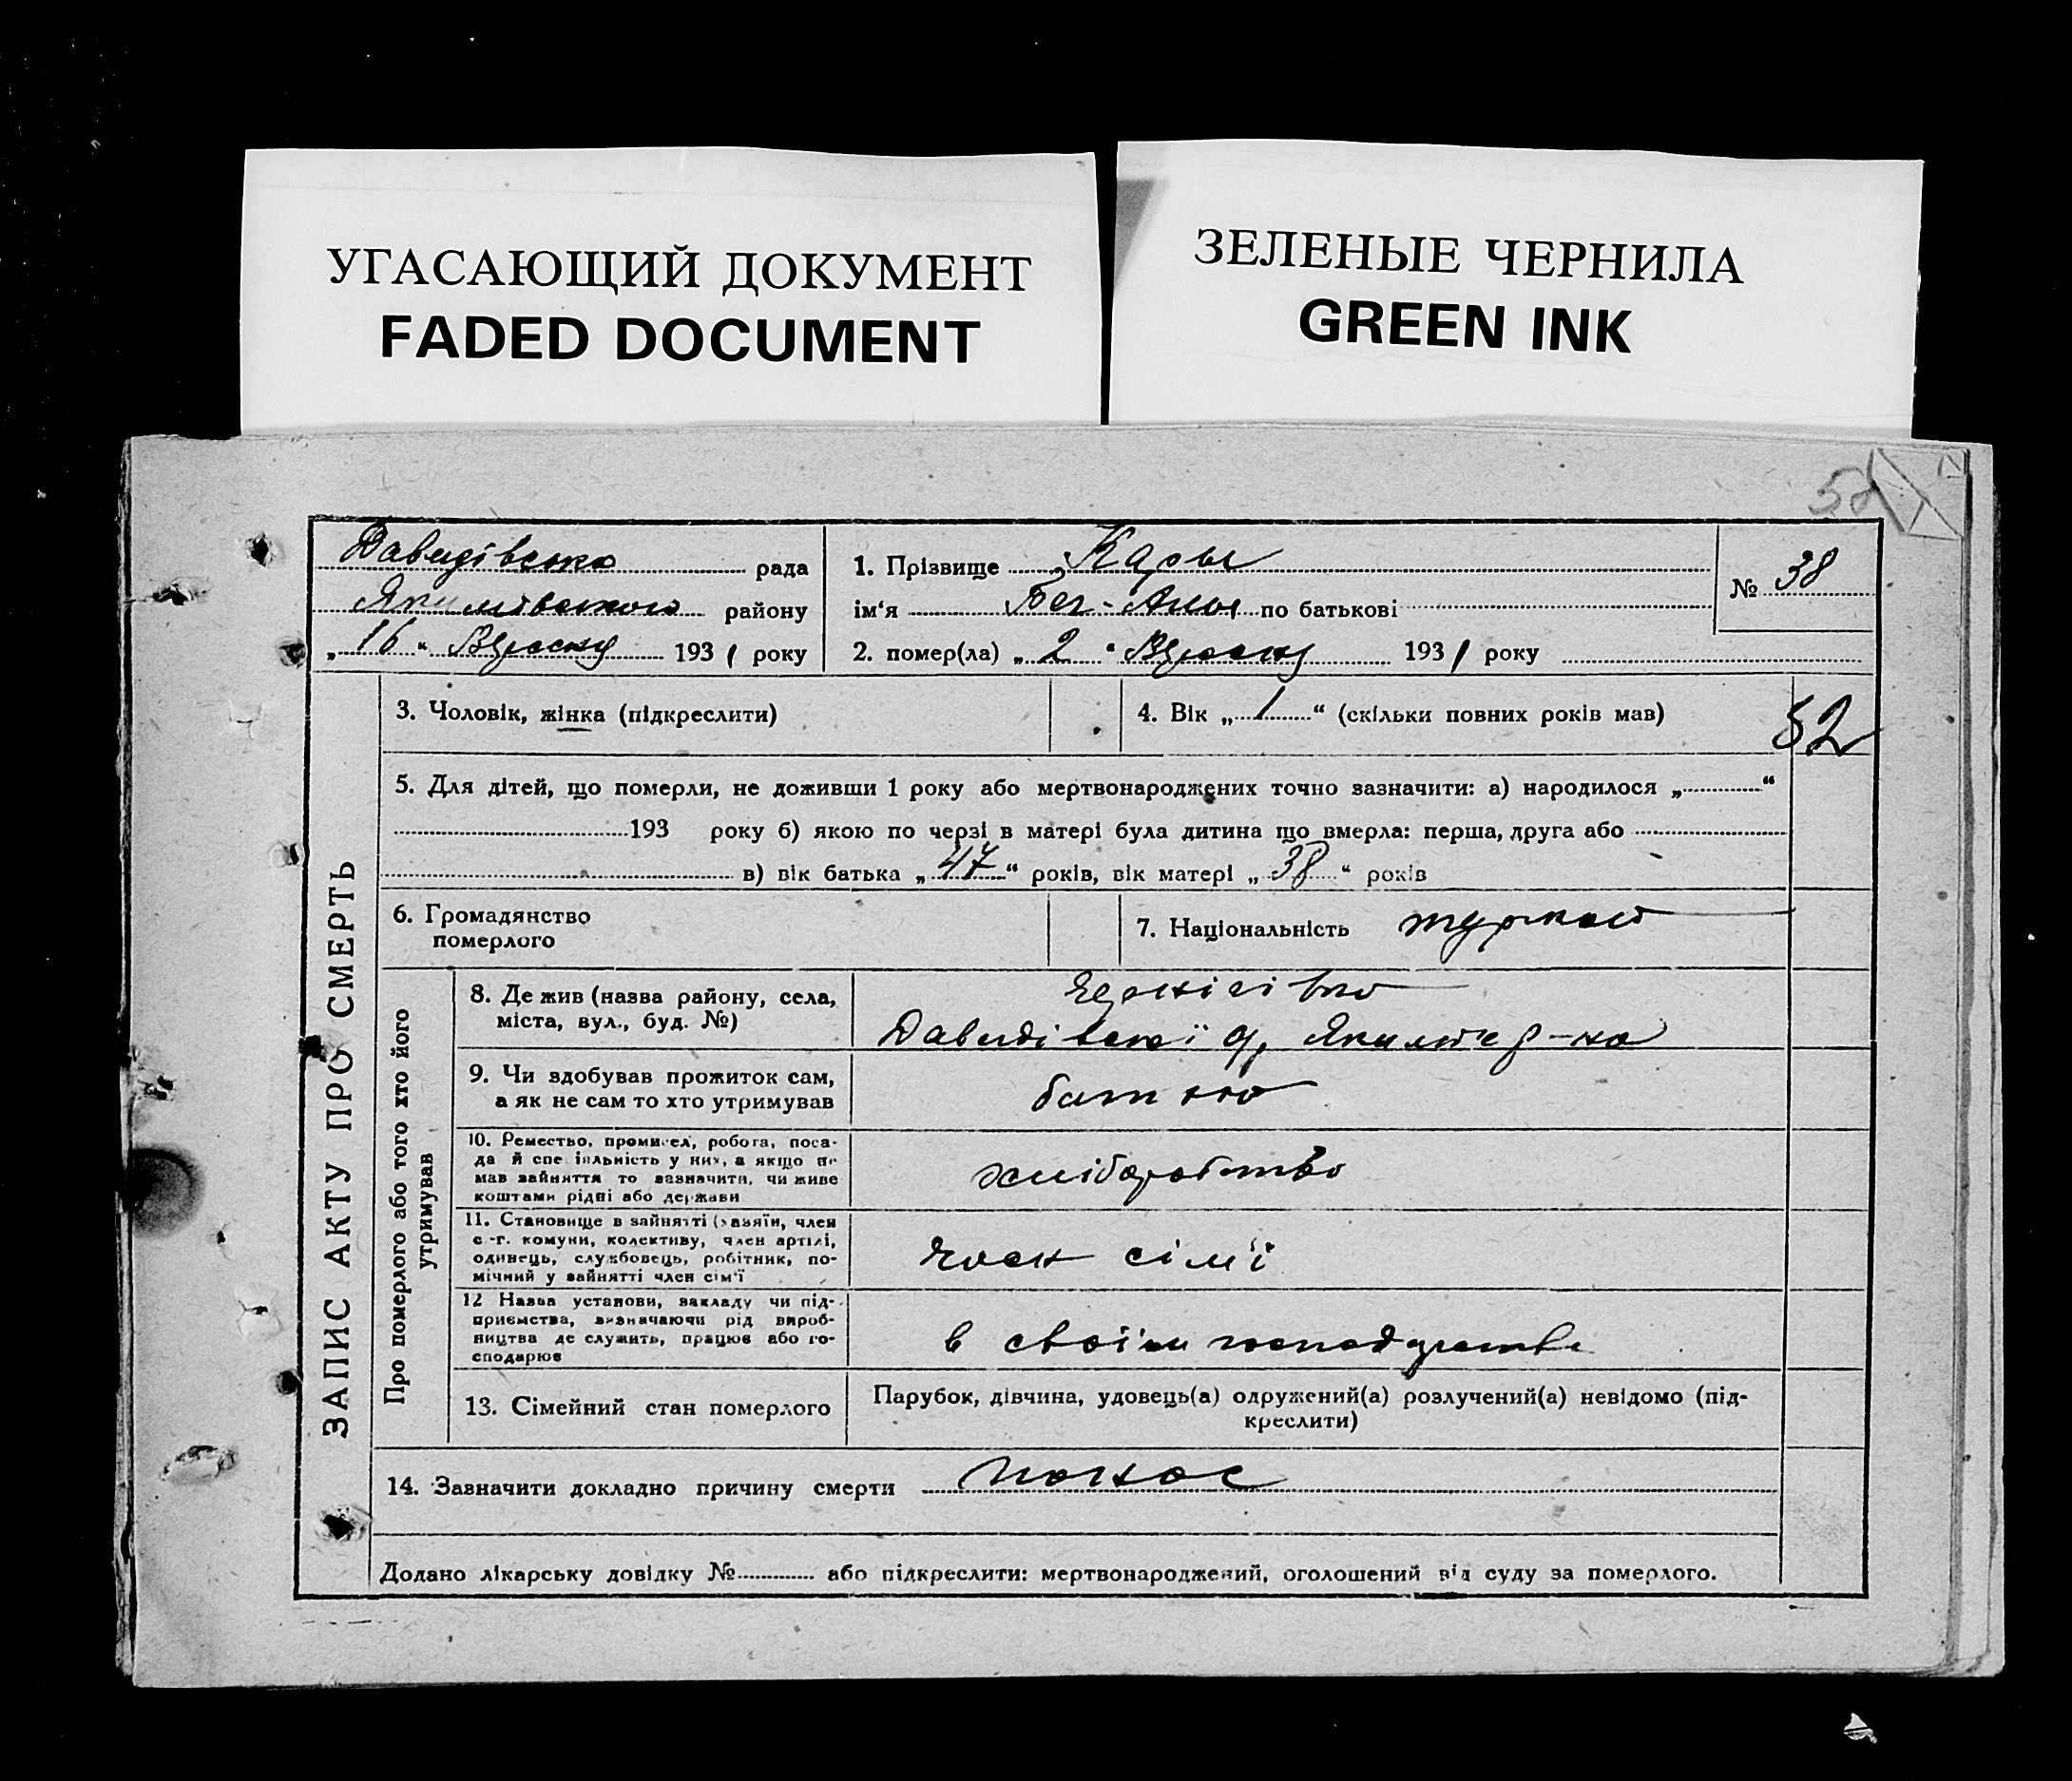 УГАСАЮЩИЙ ДОКУМЕНТ
FADED DOCUMENT
ЗЕЛЕНЫЕ ЧЕРНИЛА
GREEN INK
52
Давидівська рада
Якимівського району
„ 16 “ Вересня 1931 року
1. Прізвище Кары
ім‘я по батькові
2. помер(ла) „ 2 “ Вересня 1931 року
№ 38
ЗАПИС АКТУ ПРО СМЕРТЬ
3. Чоловік, жінка (підкреслити)
4. Вік „ 1 “ (скільки повних років мав)
52
5. Для дітей, що померли, не доживши 1 року або мертвонароджених точно зазначити: а) народилося „ “
193 року б) якою по черзі в матері була дитина що вмерла: перша, друга або
в) вік батька „ 47 “ років, вік матері „ 38 “ років
6. Громадянство
померлого
7. Національність
Про померлого або того хто його
утримував
8. Де жив (назва району, села,
міста, вул., буд. №)
Давидівської р-на
9. Чи здобував прожиток сам,
а як не сам то хто утримував
батько
10. Ремество, промисел, робота, поса-
да й спеціяльність у них, а якщо не
мав зайняття то зазначити, чи живе
коштами рідні або держави
хліборобство
11. Становище в зайнятті (хазяїн, член
с.-г. комуни, колективу, член артілі,
одинець, службовець, робітник, по-
мічний у зайнятті член сім‘ї
член сім'ї
12 Назва установи, закладу чи під-
приємства, визначаючи рід вироб-
ництва де служить, працює або го-
сподарює
в своїм господарстві
13. Сімейний стан померлого
Парубок, дівчина, удовець(а) одружений(а) розлучений(а) невідомо (під-
креслити)
14. Зазначити докладно причину смерти понос
Додано лікарську довідку № або підкреслити: мертвонароджений, оголошений від суду за померлого.